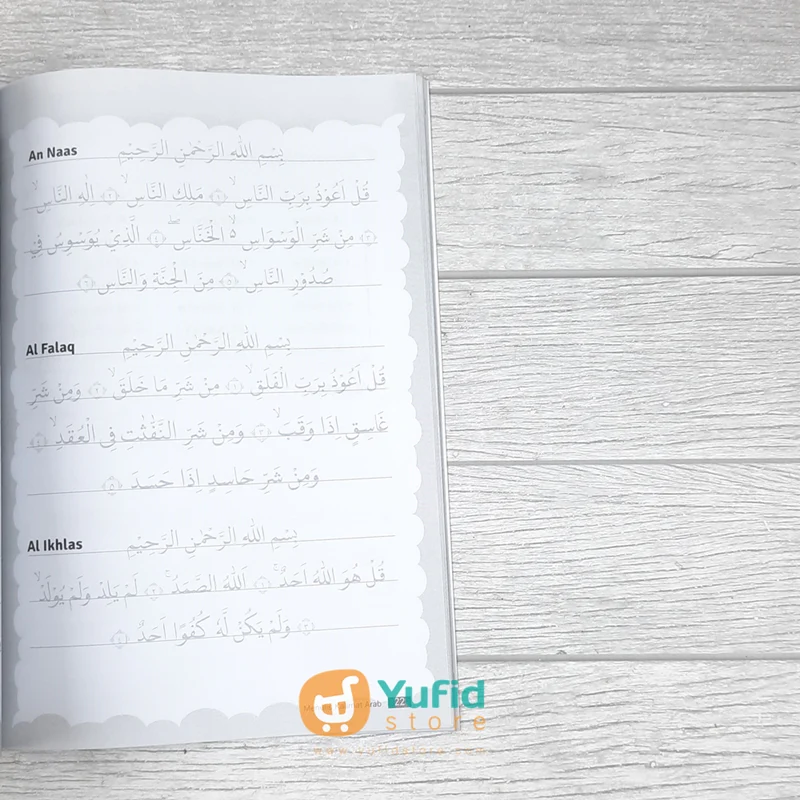 An Naas بِسْمِ اللهِ الرَّحْمٰنِ الرَّحِيْمِ
قُلْ اَعُوْذُ بِرَبِّ النَّاسِۙ ﴿١﴾ مَلِكِ النَّاسِۙ ﴿٢﴾ اِلٰهِ النَّاسِۙ
﴿٣﴾ مِنْ شَرِّ الْوَسْوَاسِ ەۙ الْخَنَّاسِۖ ﴿٤﴾ الَّذِيْ يُوَسْوِسُ فِيْ
صُدُوْرِ النَّاسِۙ ﴿٥﴾ مِنَ الْجِنَّةِ وَالنَّاسِ ﴿٦﴾
Al Falaq بِسْمِ اللهِ الرَّحْمٰنِ الرَّحِيْمِ
قُلْ اَعُوْذُ بِرَبِّ الْفَلَقِۙ ﴿١﴾ مِنْ شَرِّ مَا خَلَقَۙ ﴿٢﴾ وَمِنْ شَرِّ
غَاسِقٍ اِذَا وَقَبَۙ ﴿٣﴾ وَمِنْ شَرِّ النَّفّٰثٰتِ فِى الْعُقَدِۙ ﴿٤﴾
وَمِنْ شَرِّ حَاسِدٍ اِذَا حَسَدَ ﴿٥﴾
Al Ikhlas بِسْمِ اللهِ الرَّحْمٰنِ الرَّحِيْمِ
قُلْ هُوَ اللهُ اَحَدٌۚ ﴿١﴾ اَللهُ الصَّمَدُۚ ﴿٢﴾ لَمْ يَلِدْ وَلَمْ يُوْلَدْۙ
﴿٣﴾ وَلَمْ يَكُنْ لَّهٗ كُفُوًا اَحَدٌ ﴿٤﴾
Arab 22
Yufid
store
www.yufidstore.com